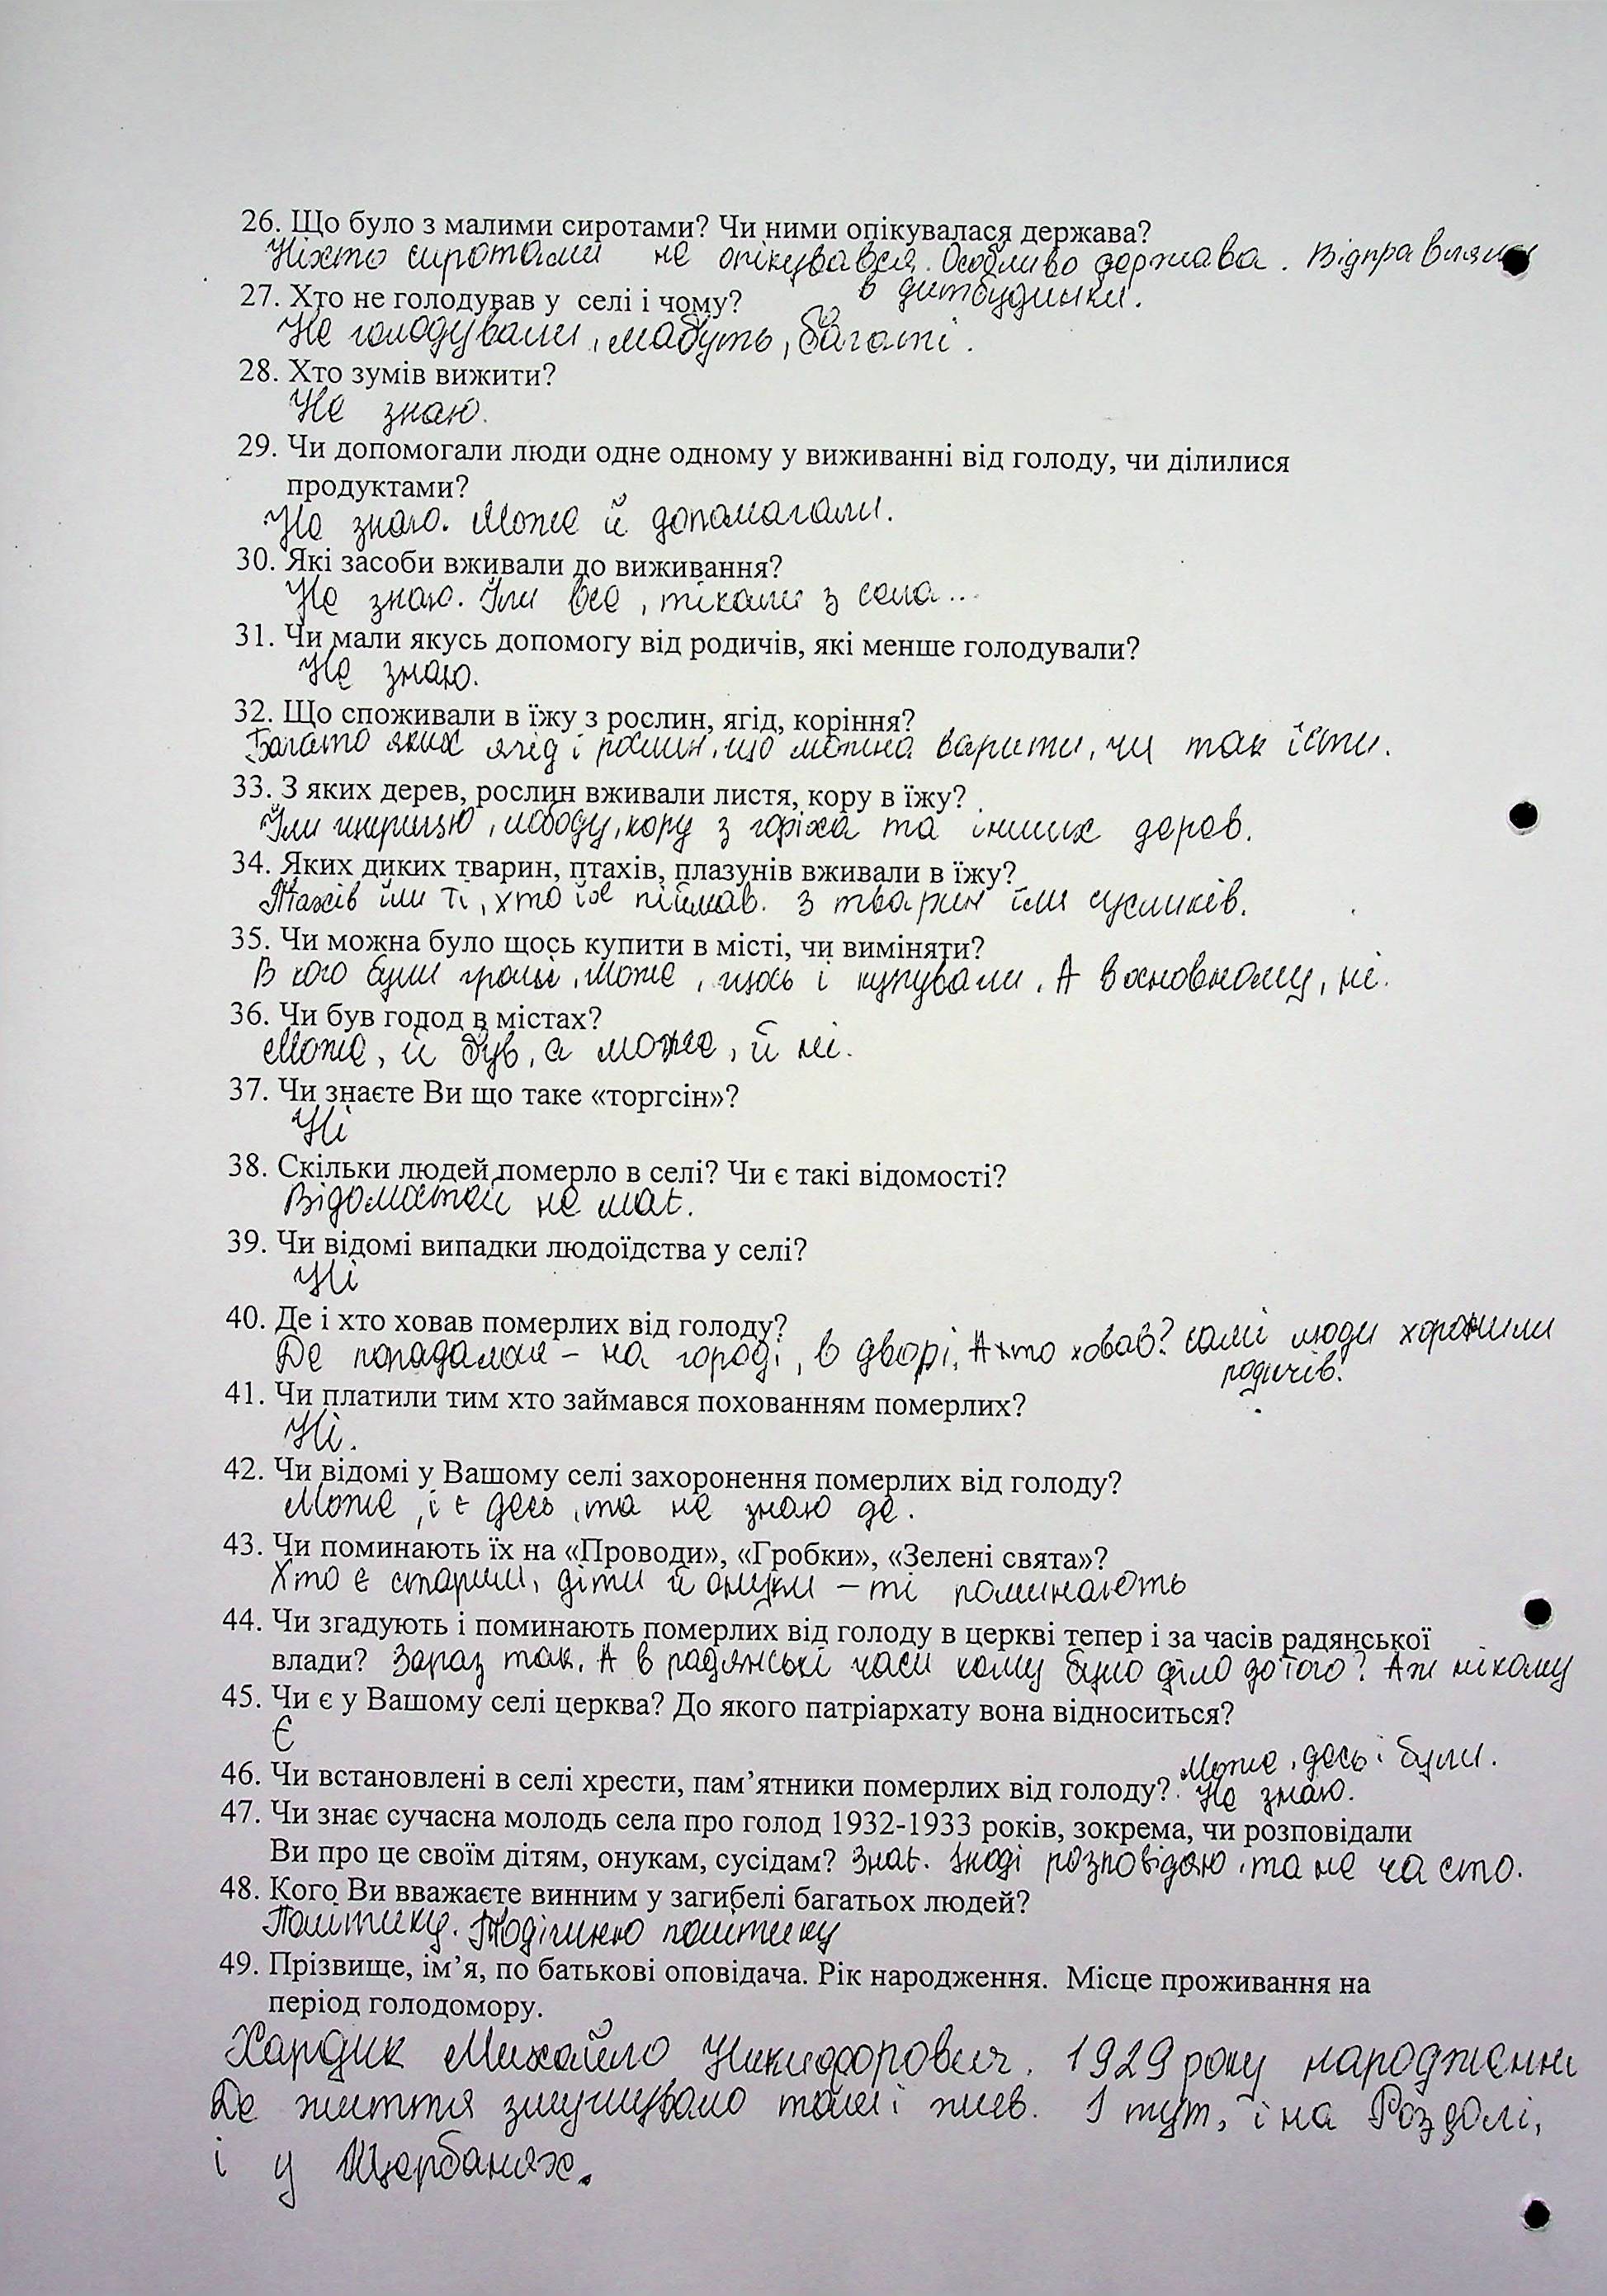 26. Що було з малими сиротами? Чи ними опікувалася держава?
Ніхто сиротами не опікувався. Особливо держава. Відправляли
в дитбудинки.
27. Хто не голодував у селі і чому?
Не голодували, мабуть, багаті.
28. Хто зумів вижити?
Не знаю.
29. Чи допомогали люди одне одному у виживанні від голоду, чи ділилися
продуктами?
Не знаю. Може й допомагали.
30. Які засоби вживали до виживання?
Не знаю. Їли все, тікали з села...
31. Чи мали якусь допомогу від родичів, які менше голодували?
Не знаю.
32. Що споживали в їжу з рослин, ягід, коріння?
Багато яких ягід і рослин, що можна варити, чи так їсти.
33. З яких дерев, рослин вживали листя, кору в їжу?
Їли щирицю, лободу, кору з горіха та інших дерев.
34. Яких диких тварин, птахів, плазунів вживали в їжу?
Птахів їли ті, хто їх піймав. З тварин їли сусликів.
35. Чи можна було щось купити в місті, чи виміняти?
В кого були гроші, може, щось і купували. А в основному, ні.
36. Чи був голод в містах?
Може, й був, а може, й ні.
37. Чи знаєте Ви що таке «торгсін»?
Ні
38. Скільки людей померло в селі? Чи є такі відомості?
Відомостей не має.
39. Чи відомі випадки людоїдства у селі?
Ні
40. Де і хто ховав померлих від голоду?
Де попадалося – на городі, в дворі. А хто ховав? Самі люди хоронили
родичів.
41. Чи платили тим хто займався похованням померлих?
Ні.
42. Чи відомі у Вашому селі захоронення померлих від голоду?
Може, і є десь, та не знаю де.
43. Чи поминають їх на «Проводи», «Гробки», «Зелені свята»?
Хто є старші, діти й онуки – ті поминають
44. Чи згадують і поминають померлих від голоду в церкві тепер і за часів радянської
влади? Зараз так. А в радянські часи кому було діло до того? Аж нікому
45. Чи є у Вашому селі церква? До якого патріархату вона відноситься?
Є
Може, десь і були.
46. Чи встановлені в селі хрести, пам’ятники померлих від голоду? Не знаю.
47. Чи знає сучасна молодь села про голод 1932-1933 років, зокрема, чи розповідали
Ви про це своїм дітям, онукам, сусідам? Знає. Іноді розповідаю, та не часто.
48. Кого Ви вважаєте винним у загибелі багатьох людей?
Політику. Тодішню політику
49. Прізвище, ім’я, по батькові оповідача. Рік народження. Місце проживання на
період голодомору.
Хардик Михайло Никифорович. 1929 року народження
Де життя змушувало там і жив. І тут, і на Роздолі,
і у Щербанях.